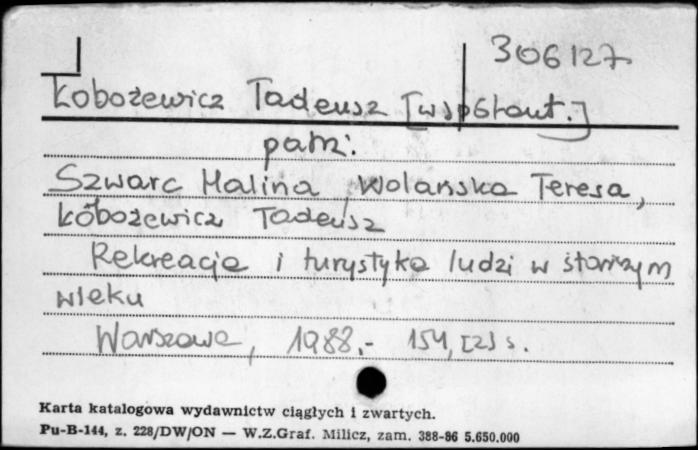 306127
Łobożewicz Tadeusz [współaut.]
patrz:
Szwarc Halina, Wolańska Teresa,
Łobożewicz Tadeusz
Rekreacja i turystyka ludzi w starszym
wieku
Warszawa, 1988.- 154, [2] s.
Karta katalogowa wydawnictw ciągłych i zwartych.
Pu-B-144, z. 228/DW/ON — W.Z.Graf. Milicz, zam. 388-86 5.650.000